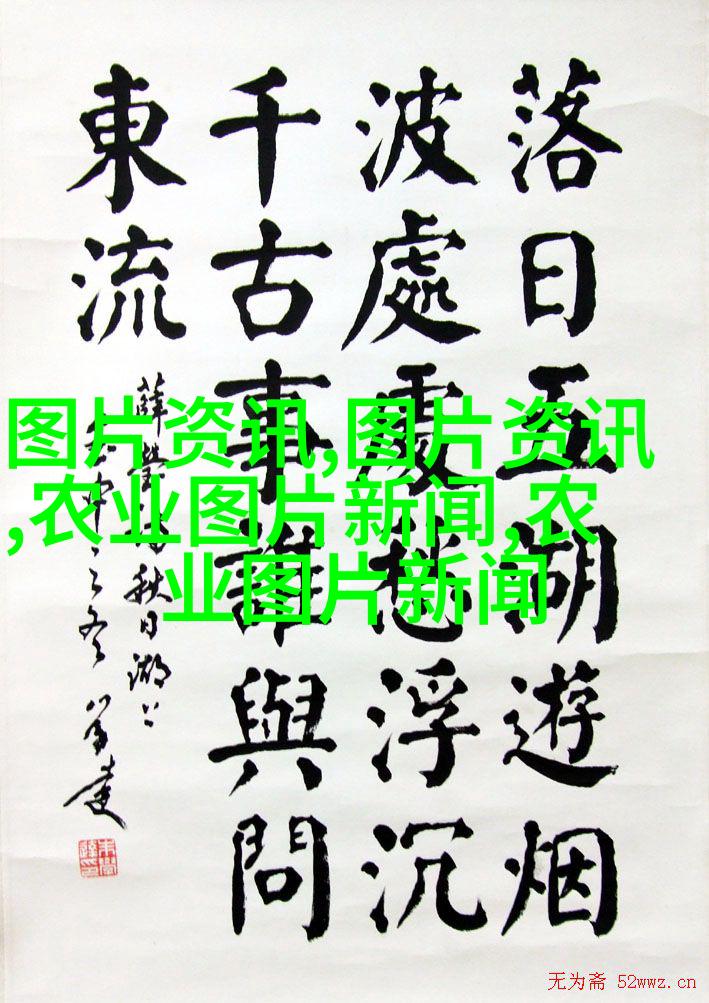 落日五湖遊烟
波處處愁浮沉
千古事誰與問
東流
薛瑩 秋日湖上
图片资讯,图片资讯
,农业图片新闻,农
业图片新闻
无为斋 52wwz.cn